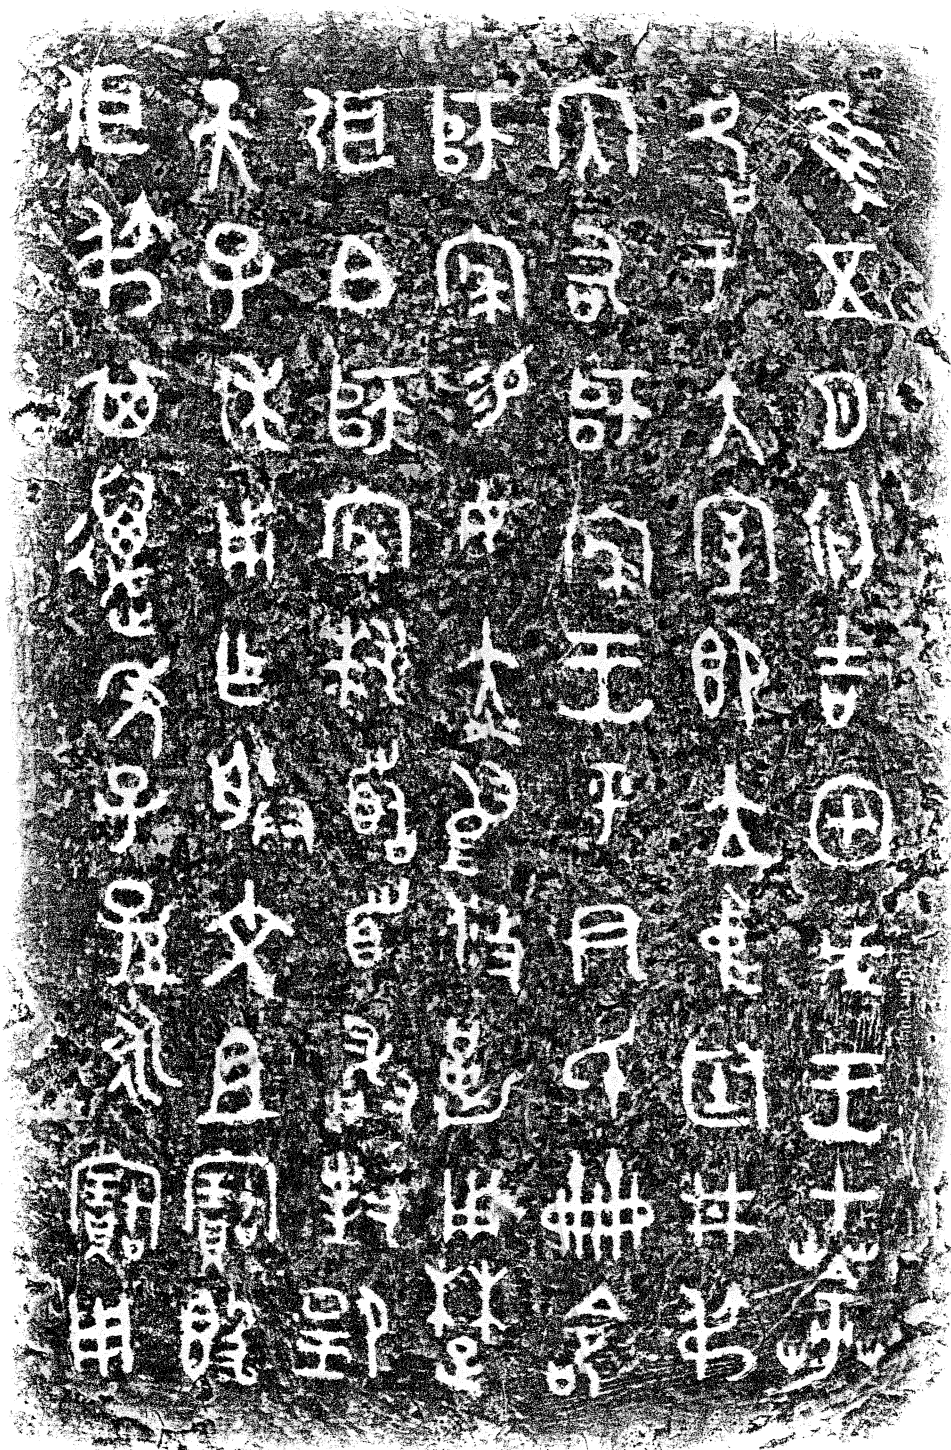 隹五月初吉甲戌王才𦮘
各于大室即立中廷井弔
內右師察王乎尹氏冊命
師察易女赤舄攸勒用楚
弭白師察拜稽首敢對揚
天子休用乍朕文且寶𣪘
弭弔其萬年子孫永寶用